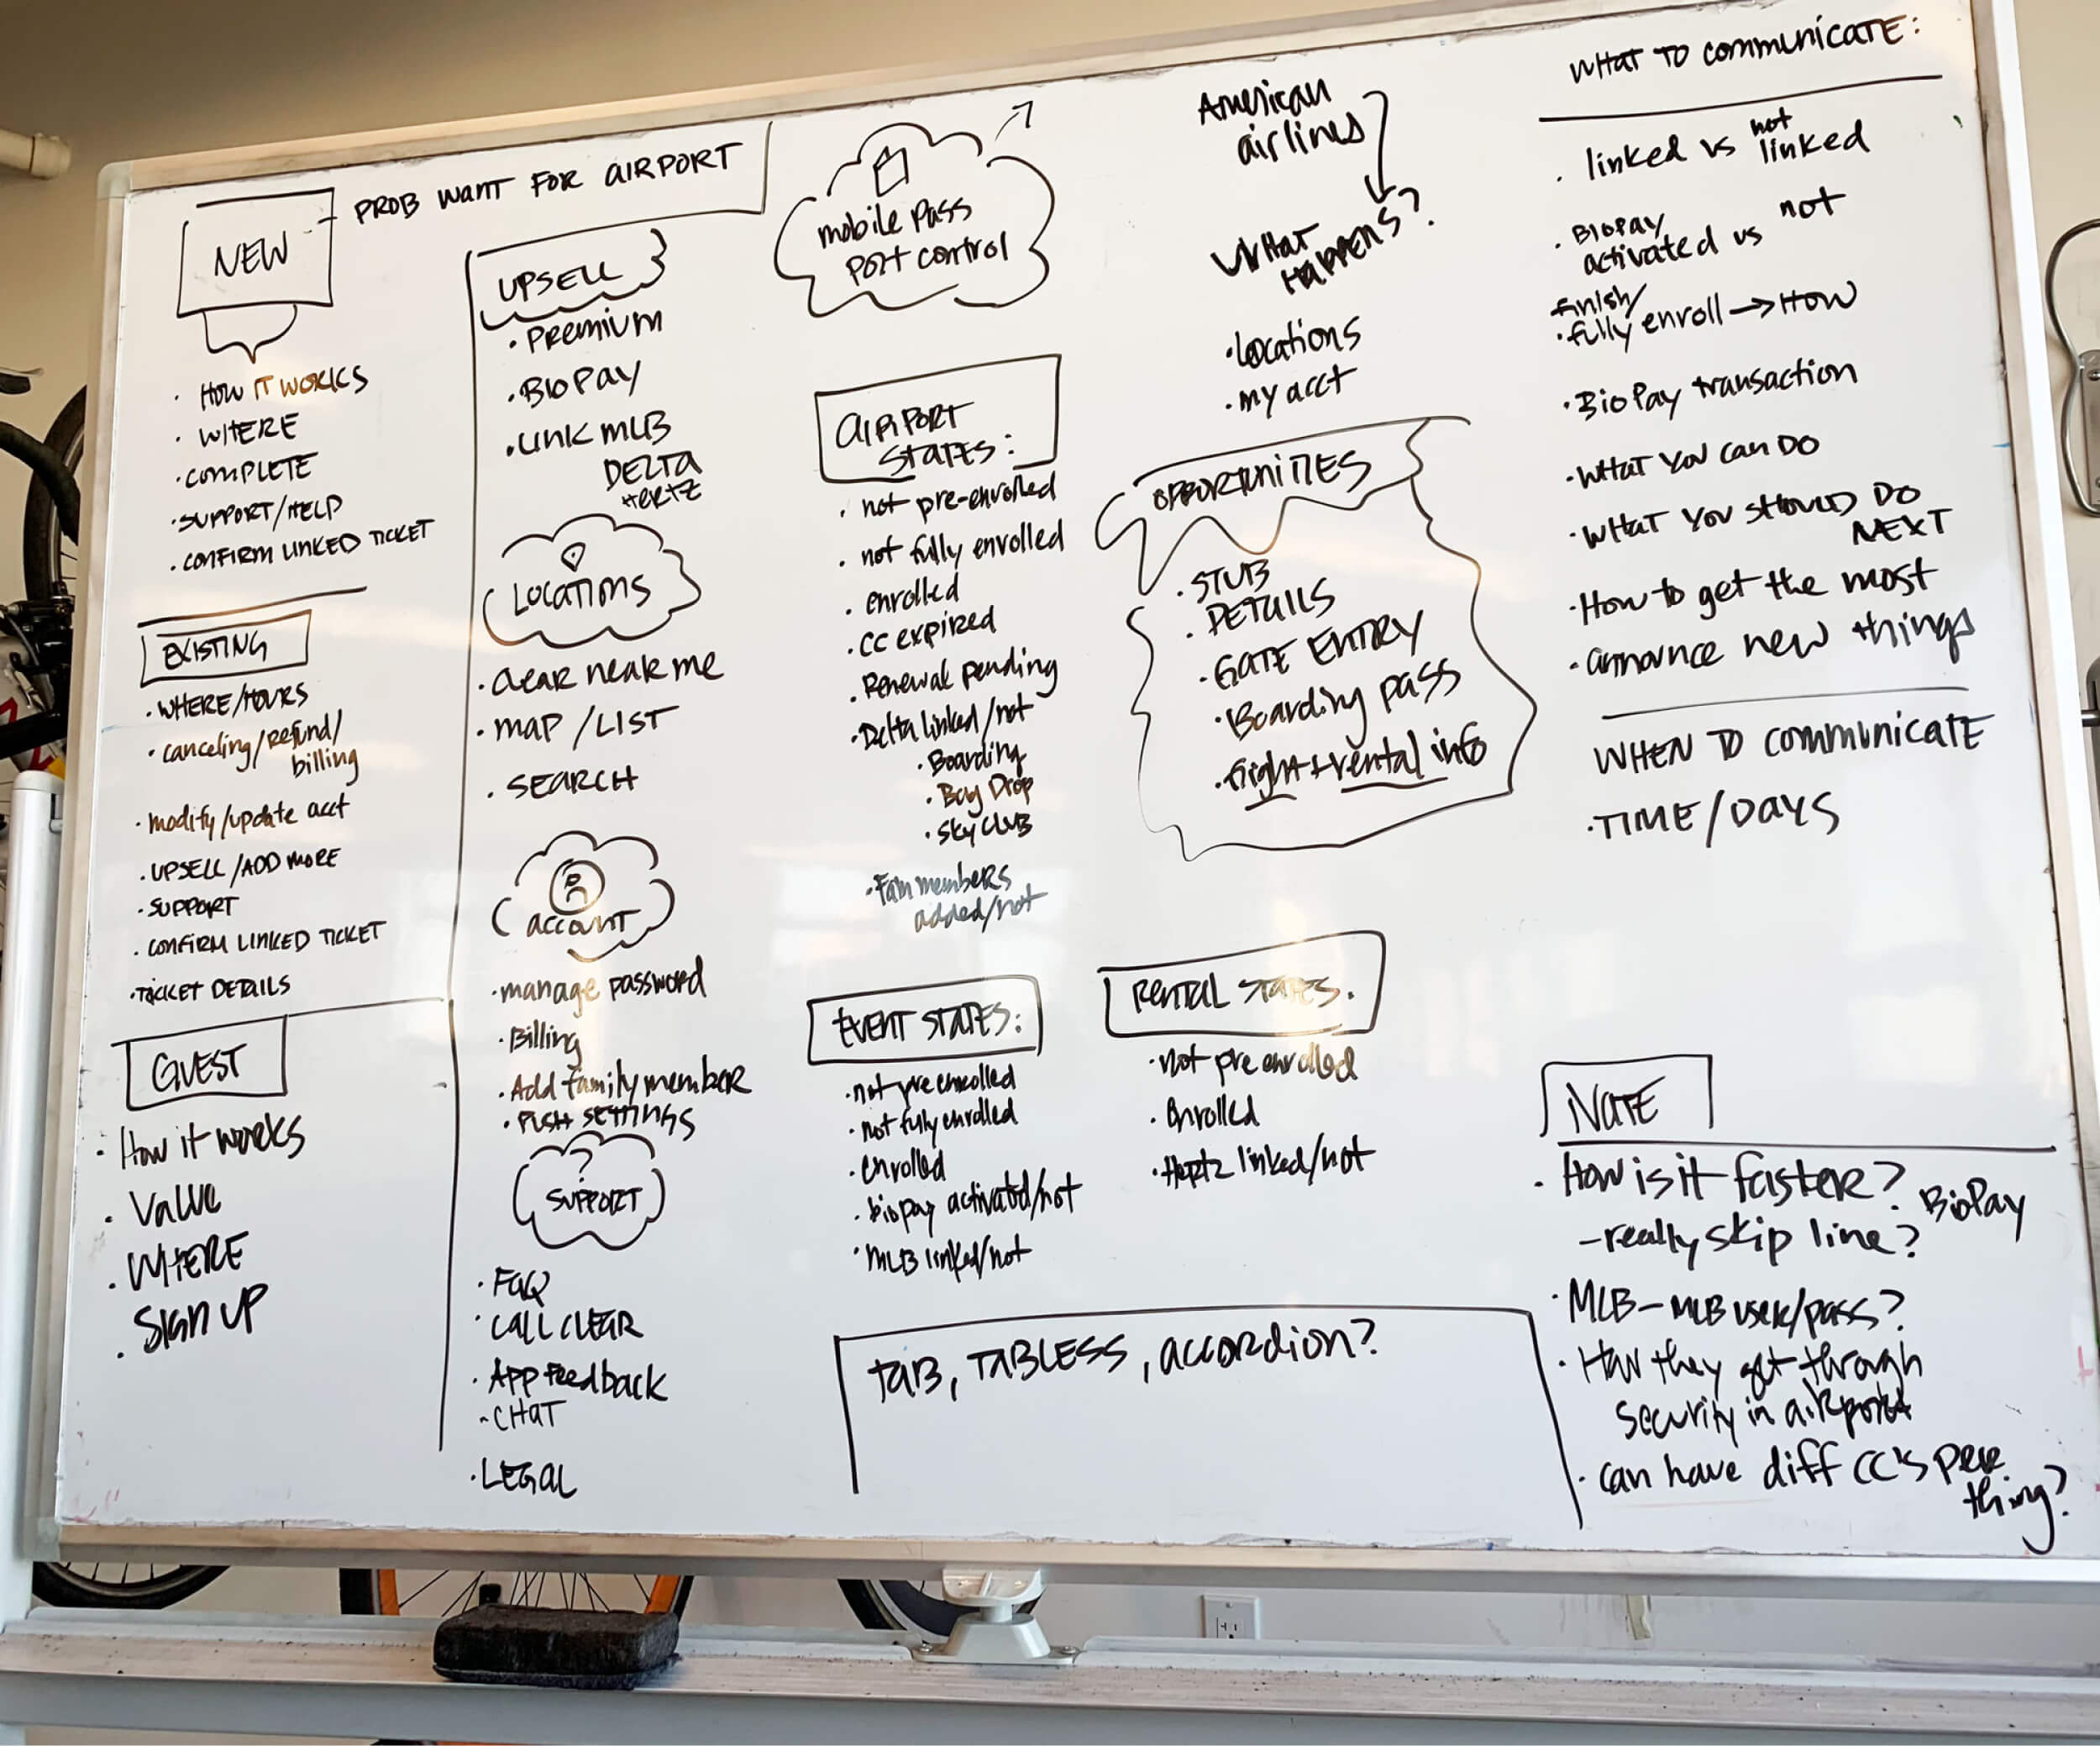 NEW
- PROB WANT FOR AIRPORT
· HOW IT WORKS
· WHERE
· COMPLETE
· SUPPORT/HELP
· CONFIRM LINKED TICKET
EXISTING
· WHERE/HOURS
· canceling/Refund/
billing
· modify/update acct
· UPSELL/ADD MORE
· SUPPORT
· CONFIRM LINKED TICKET
· TICKET DETAILS
GUEST
· How it works
· Value
· WHERE
· SIGN UP
UPSELL
· PREMIUM
· BIOPAY
· LINK MLB
DELTA
HERTZ
LOCATIONS
· CLEAR near me
· MAP / LIST
· SEARCH
account
· manage password
· Billing
· Add family member
· PUSH SETTINGS
?
SUPPORT
· FAQ
· CALL CLEAR
· APP Feedback
- CHAT
· LEGAL
mobile pass
port control
AIRPORT
STATES:
· not pre-enrolled
· not fully enrolled
· enrolled
· CC expired
· Renewal pending
· Delta linked/not
· Boarding
· Bag Drop
· SKY CLUB
· Fam members
added/not
EVENT STATES:
· not pre enrolled
· not fully enrolled
· enrolled
· biopay activated/not
· MLB linked/not
American
airlines
WHAT
HAPPENS?
· Locations
· my acct
OPPORTUNITIES
· STUB
· DETAILS
· GATE ENTRY
· Boarding pass
· flight + rental info
RENTAL STATES.
· not pre enrolled
· Enrolled
· Hertz linked/not
TAB, TABLESS, accordion?
WHAT TO communicate:
· linked vs not
linked
· BIOPAY
activated vs not
finish/
· fully enroll → How
· BioPay transaction
· WHAT YOU can DO
· WHAT YOU SHOULD DO
NEXT
· How to get the most
· announce new things
WHEN TO communicate
· TIME/DAYS
NATE
· How is it faster?
- really skip line? BioPay
· MLB - MLB user/pass?
· How they get through
security in airport
· can have diff CC's per
thing?